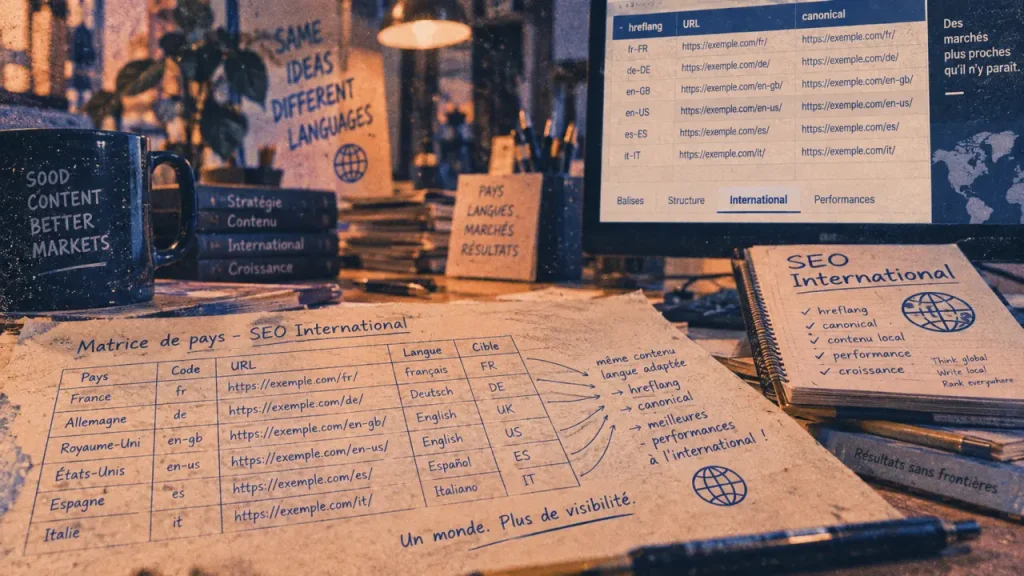 SAME
IDEAS
DIFFERENT
LANGUAGES
SOOD
CONTENT
BETTER
MARKETS
Stratégie
Contenu
International
Croissance
PAYS
LANGUES
MARCHÉS
RÉSULTATS
hreflang URL canonical
fr-FR https://exemple.com/fr/ https://exemple.com/fr/
de-DE https://exemple.com/de/ https://exemple.com/de/
en-GB https://exemple.com/en-gb/ https://exemple.com/en-gb/
en-US https://exemple.com/en-us/ https://exemple.com/en-us/
es-ES https://exemple.com/es/ https://exemple.com/es/
it-IT https://exemple.com/it/ https://exemple.com/it/
Balises Structure International Performances
Des
marchés
plus proches
qu'il n'y paraît.
SEO
International
✓ hreflang
✓ canonical
✓ contenu local
✓ performance
✓ croissance
Think global
Write local
Rank everywhere
Résultats sans frontières
Matrice de pays - SEO International
Pays Code URL Langue Cible
France fr https://exemple.com/fr/ français FR
Allemagne de https://exemple.com/de/ Deutsch DE
Royaume-Uni en-gb https://exemple.com/en-gb/ English UK
États-Unis en-us https://exemple.com/en-us/ English US
Espagne es https://exemple.com/es/ Español ES
Italie it https://exemple.com/it/ Italiano IT
même contenu
langue adaptée
→ hreflang
→ canonical
→ meilleures
- performances
à l'international !
Un monde. Plus de visibilité.